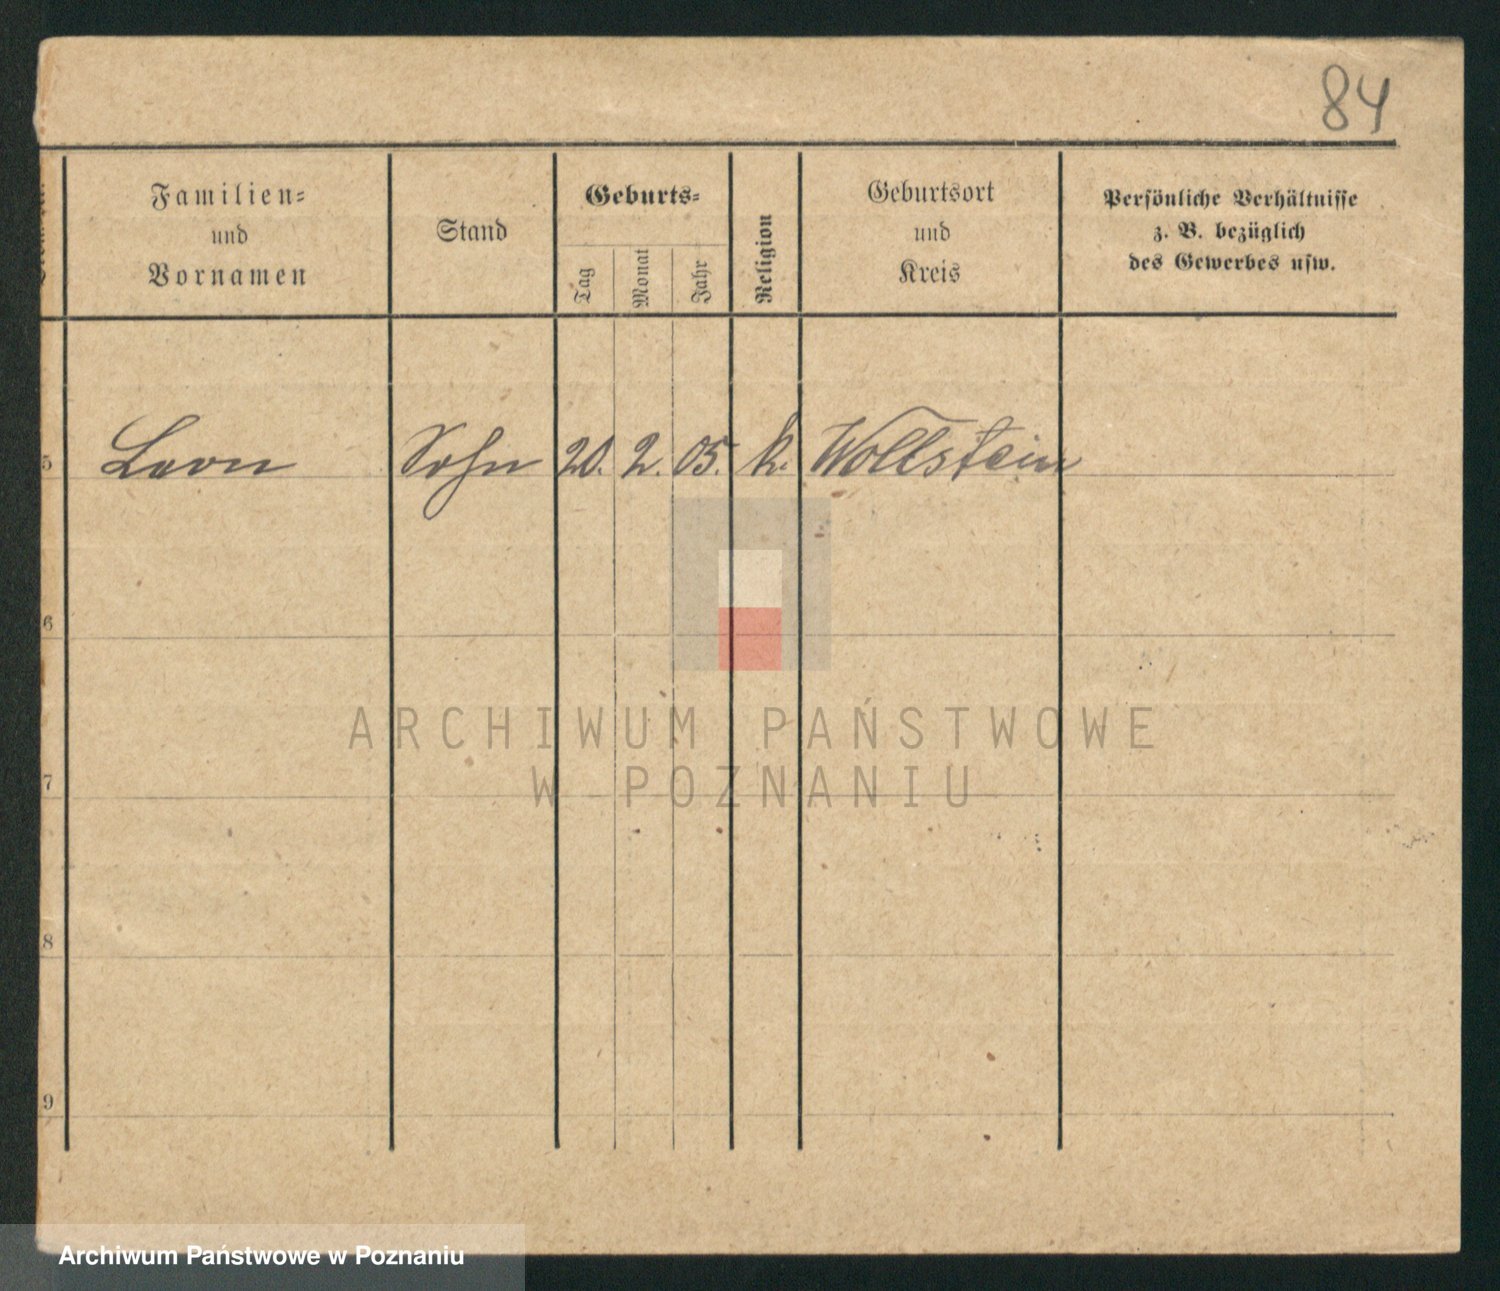 84
Familien=
und
Vornamen
Stand
Geburts=
Tag
Monat
Jahr
Religion
Geburtsort
und
Kreis
Persönliche Verhältnisse
z. B. bezüglich
des Gewerbes usw.
5 Leon Sohn 20. 2. 05. k. Wollstein
6
7
8
9
ARCHIWUM PAŃSTWOWE
W POZNANIU
Archiwum Państwowe w Poznaniu